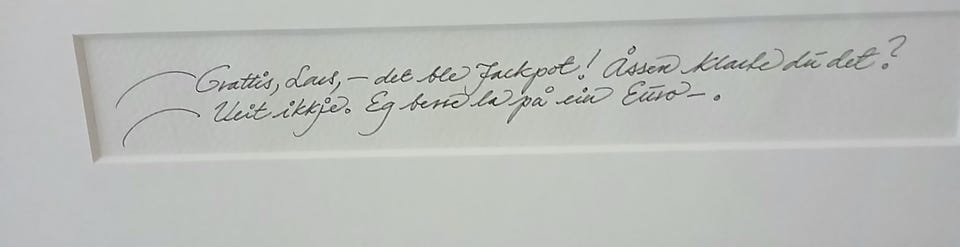 Grattis, Lars, – det ble Jackpot! Åssen klarte du det?
Veit ikkje. Eg berre la på ein Euro –.